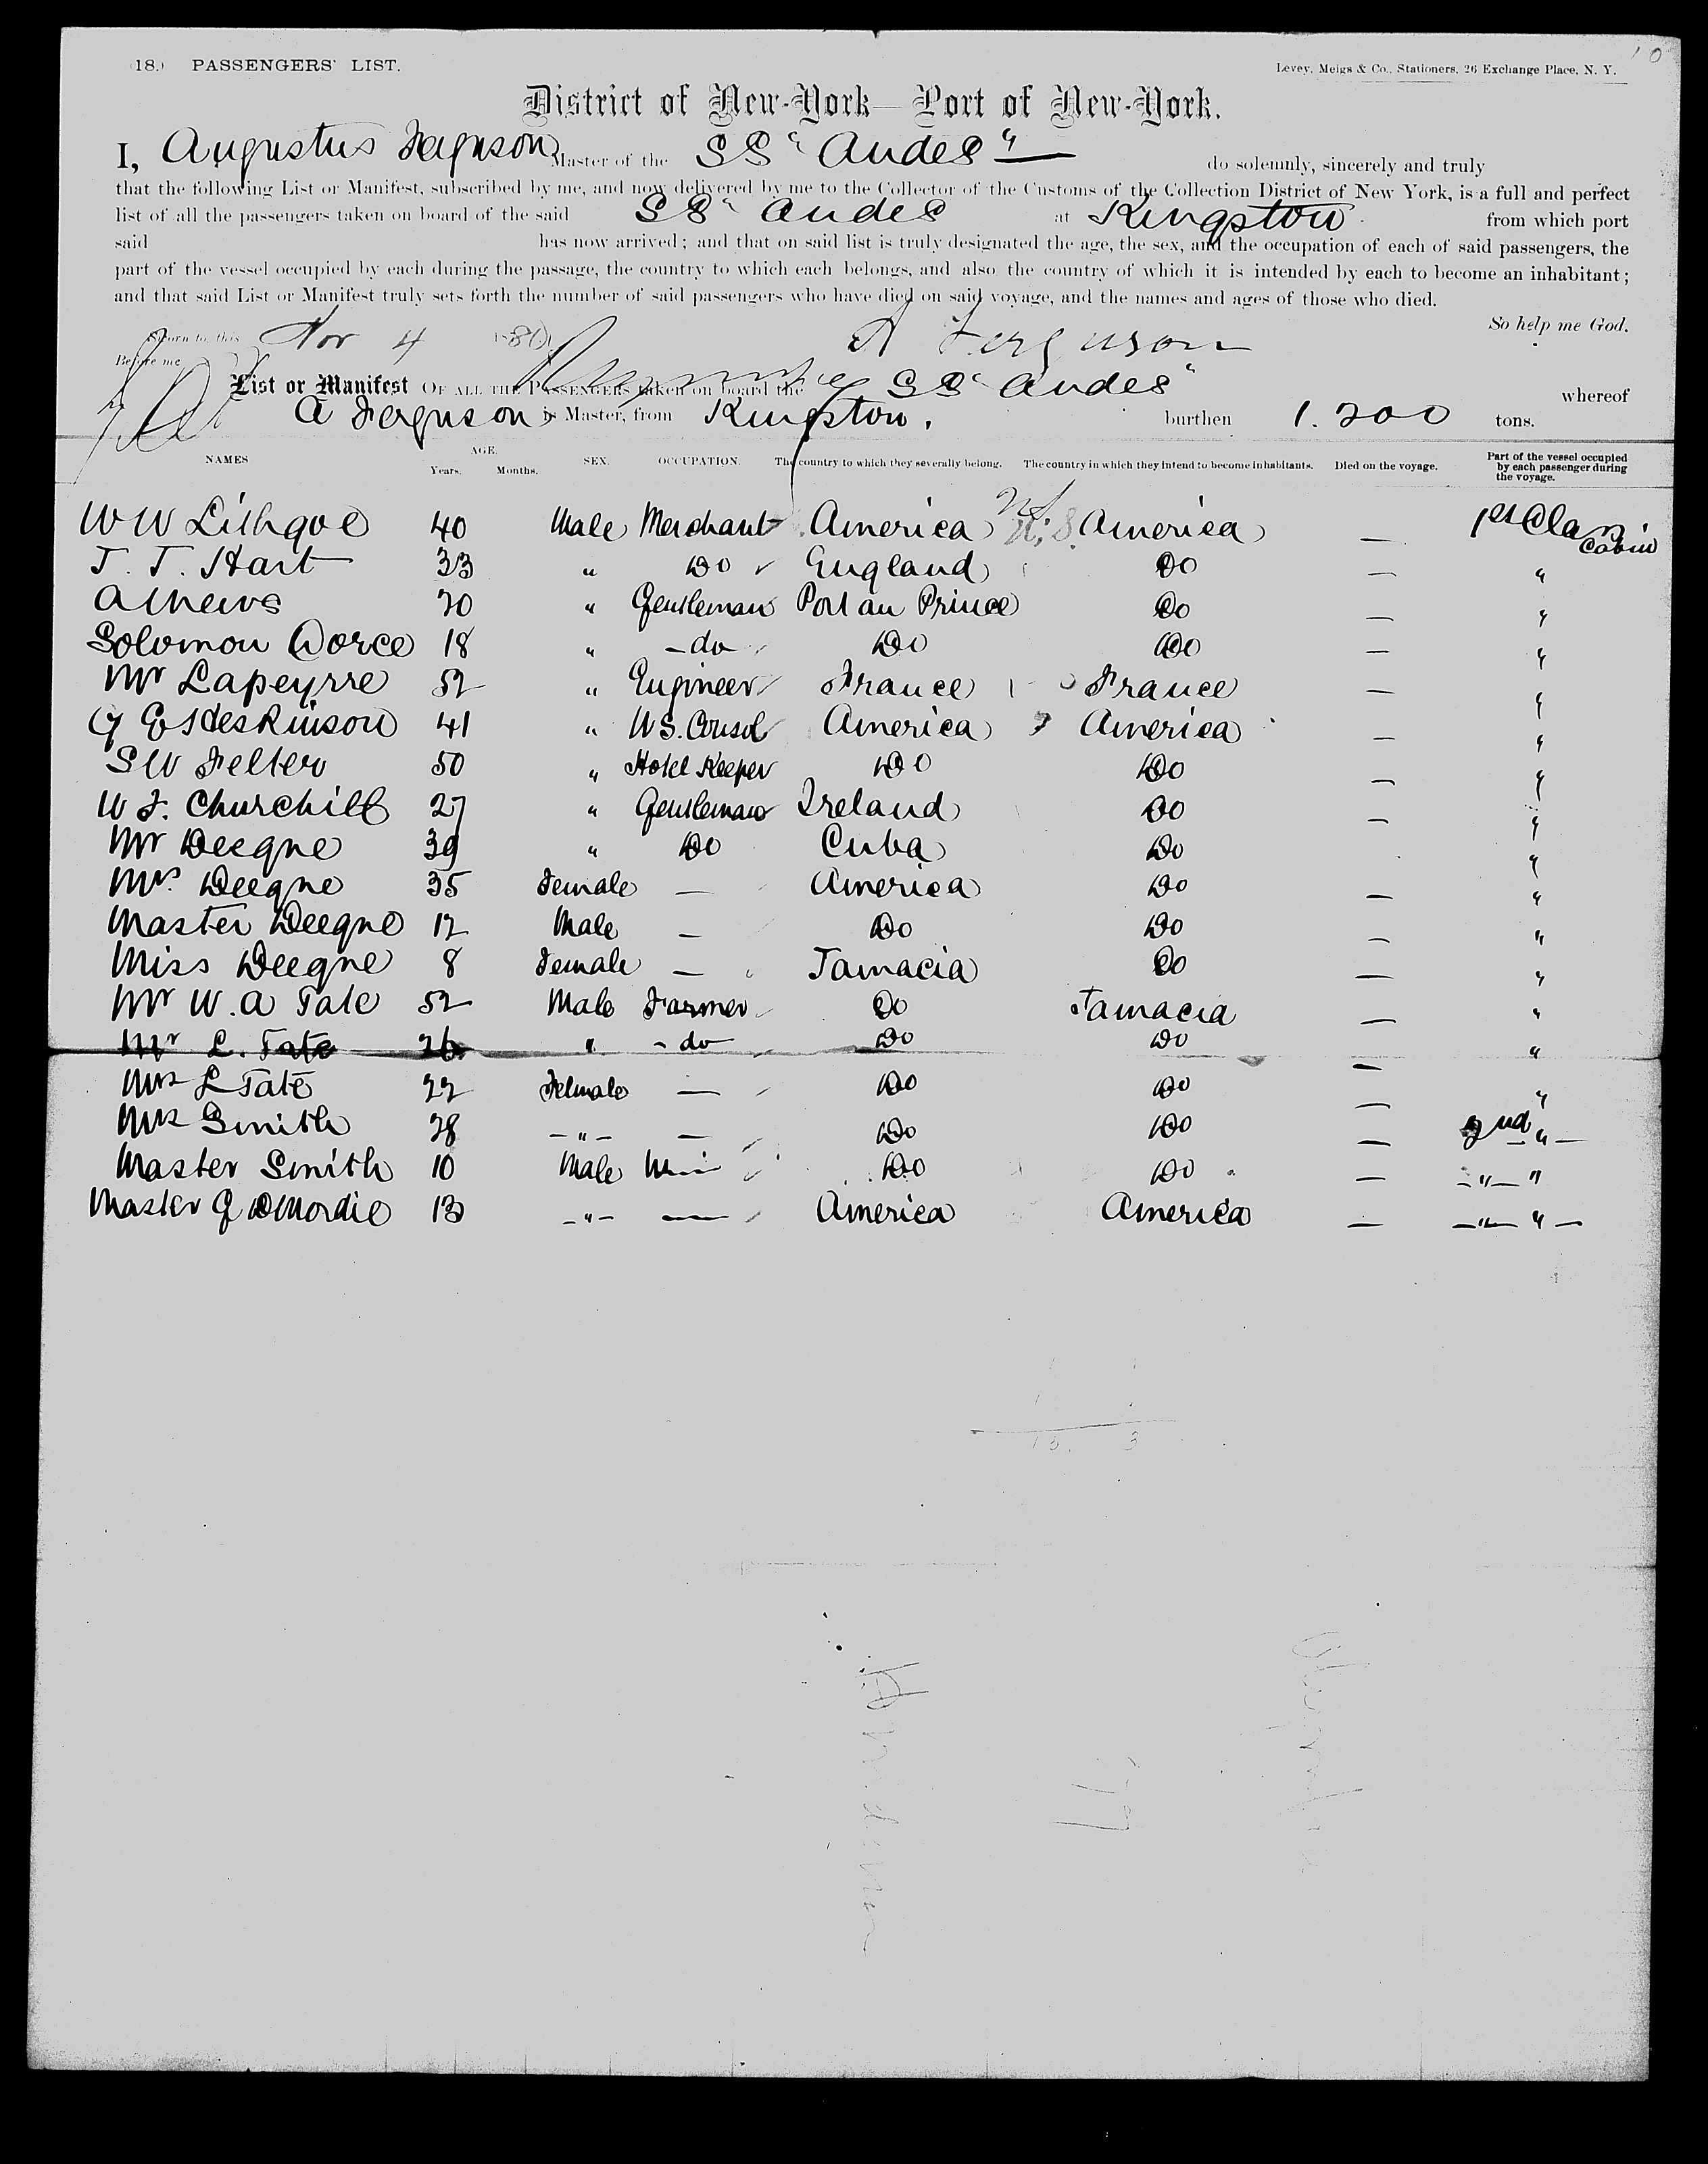 (18.) PASSENGERS' LIST.
Levey, Meigs & Co., Stationers, 26 Exchange Place, N. Y.
District of New-York — Port of New-York.
I, Augustus Ferguson Master of the SS "Andes" do solemnly, sincerely and truly
that the following List or Manifest, subscribed by me, and now delivered by me to the Collector of the Customs of the Collection District of New York, is a full and perfect
list of all the passengers taken on board of the said SS "Andes at Kingston from which port
said has now arrived; and that on said list is truly designated the age, the sex, and the occupation of each of said passengers, the
part of the vessel occupied by each during the passage, the country to which each belongs, and also the country of which it is intended by each to become an inhabitant;
and that said List or Manifest truly sets forth the number of said passengers who have died on said voyage, and the names and ages of those who died.
So help me God.
Sworn to this Nov 4 1880 A Ferguson
Before me
List or Manifest OF ALL THE PASSENGERS taken on board the SS "Andes" whereof
A Ferguson is Master, from Kingston. burthen 1.200 tons.
NAMES AGE. Years. Months. SEX. OCCUPATION. The country to which they severally belong. The country in which they intend to become inhabitants. Died on the voyage. Part of the vessel occupied by each passenger during the voyage.
W W Lithgoe 40 Male Merchant America U.S. America — 1st Class Cabin
J. T. Hart 33 " Do England Do — "
20 " Gentleman Port au Prince Do — "
Solomon Dorce 18 " - do Do Do — "
Mr Lapeyrre 52 " Engineer France France — "
G E Heskinson 41 " U S. Consul America America — "
S W Felter 50 " Hotel Keeper Do Do — "
W F. Churchill 27 " Gentleman Ireland Do — "
Mr Deegne 39 " Do Cuba Do "
Mrs. Deegne 35 Female — America Do — "
Master Deegne 12 Male — Do Do — "
Miss Deegne 8 Female — Jamacia Do — "
Mr W. A Tate 52 Male Farmer Do Jamacia — "
Mr L. Tate 26 " - do Do Do — "
Mrs L Tate 22 Felmale — Do Do — "
Mrs Smith 28 - " - — Do Do — 2nd " —
Master Smith 10 Male Do Do — - " — "
Master G DMordie 13 - " - — America America — — " — " —
13. 3